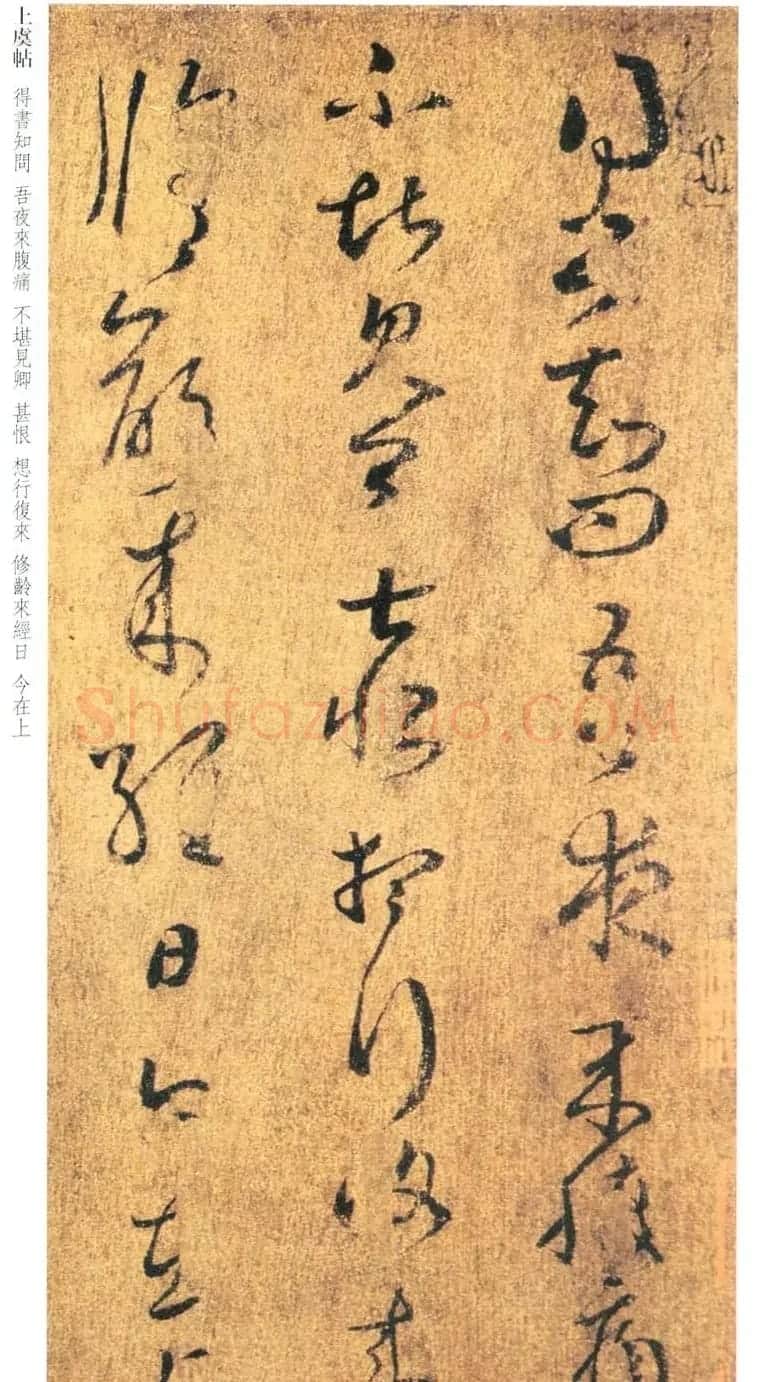 得書知問吾夜來腹痛
不堪見卿甚恨想行復來
脩齡來經日今在上
上虞帖 得書知問 吾夜來腹痛 不堪見卿 甚恨 想行復來 修齡來經日 今在上
Shufaziliao.COM